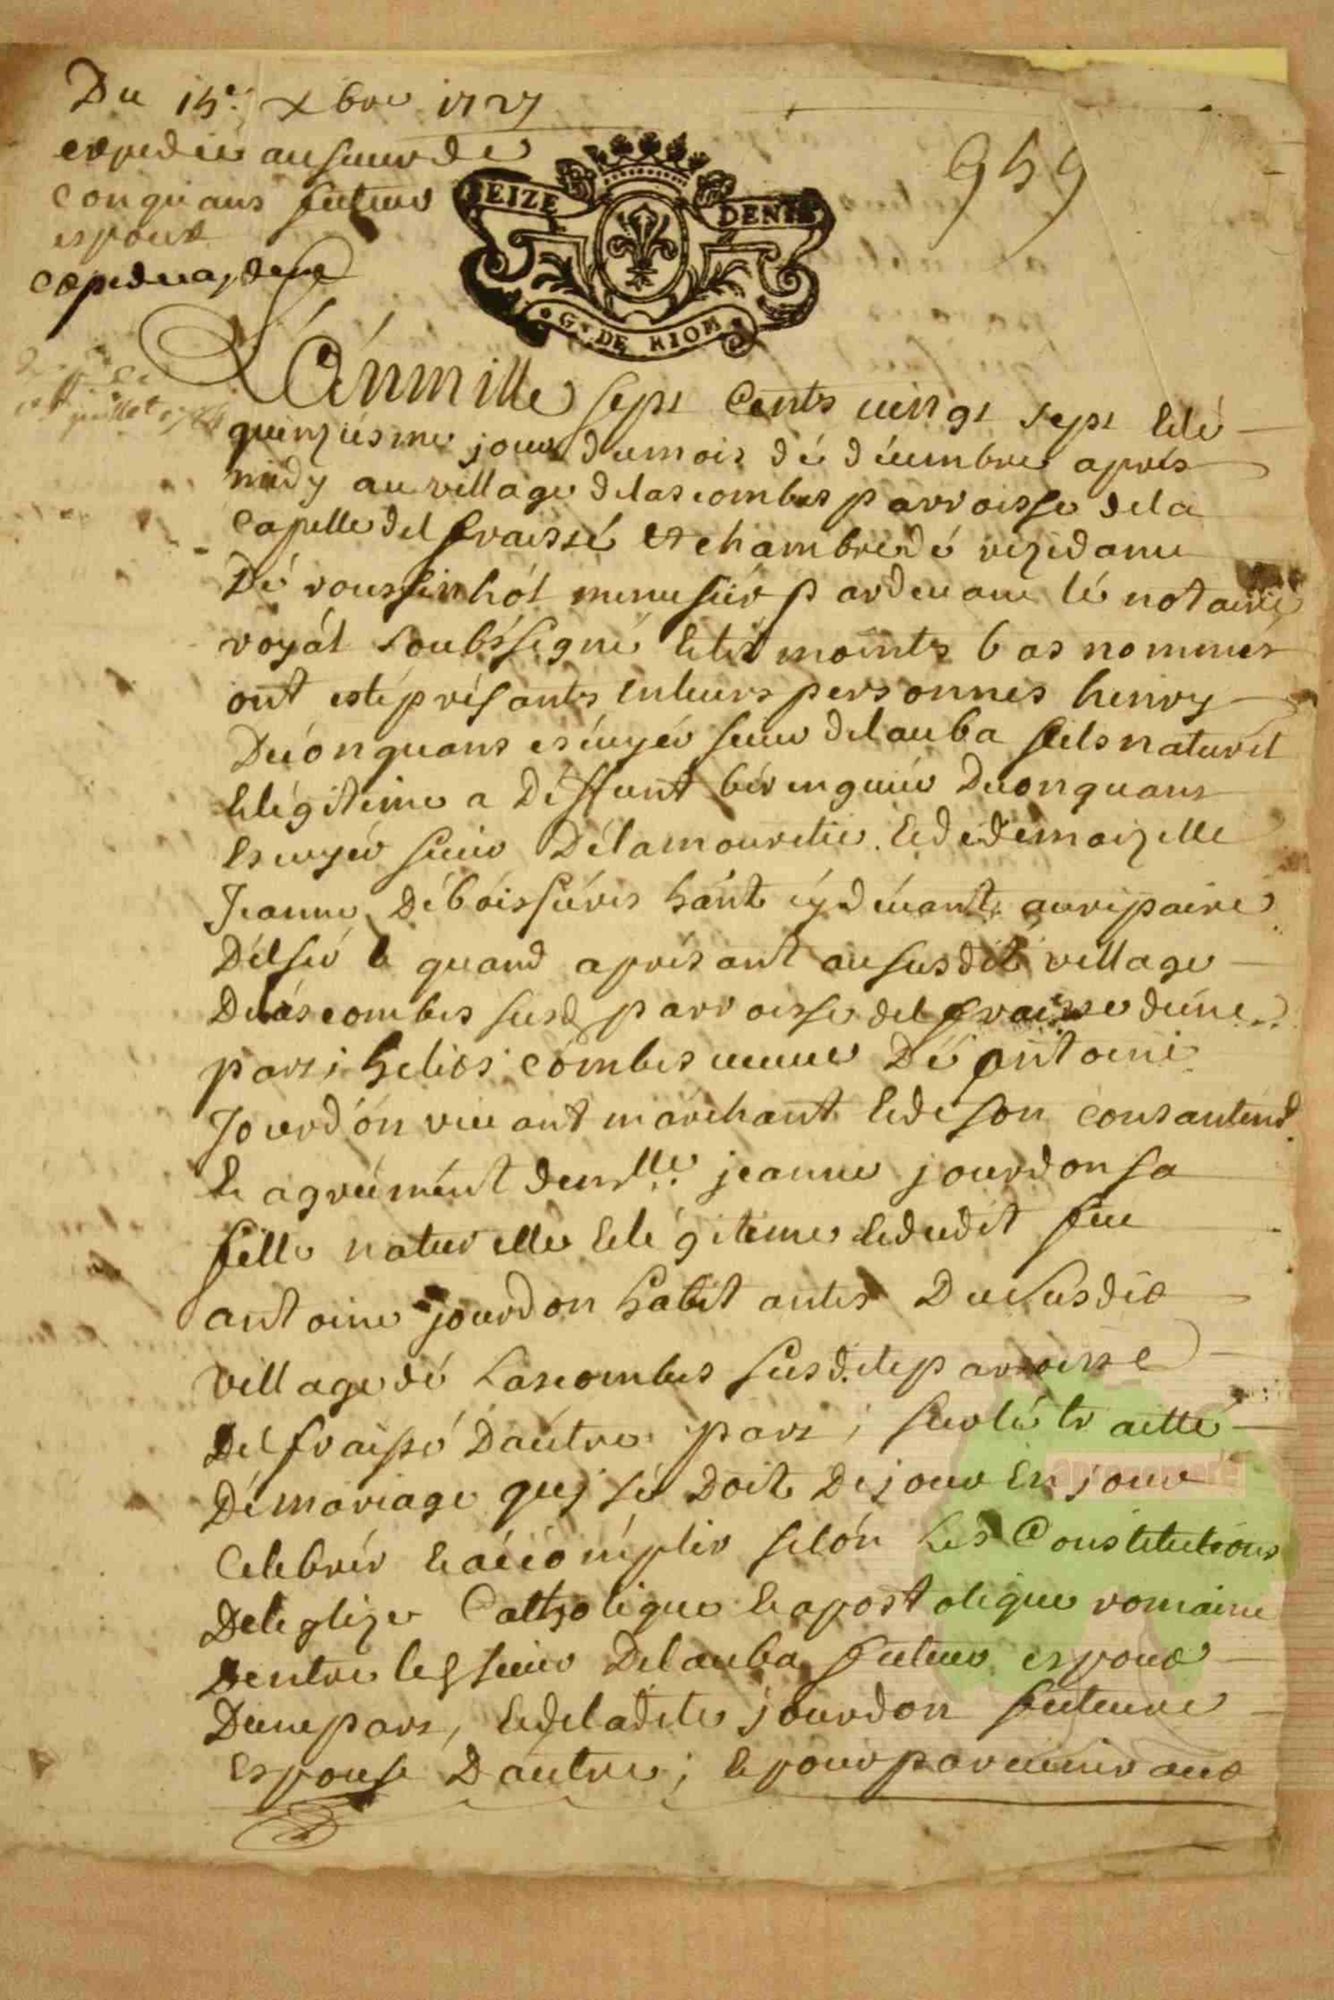 Du 15e. Xbre 1727
expedié au sieur de
Conquans futeur
espoux
expedié
juillet
959
SEIZE DENIE
G. DE RIOM
L'an mille sept Cents vingt sept Et lé
quinziesme jour du mois dé décembre aprés
midy au village de lascombes parroisse de la
Capelle del fraissé et chambre dé rezidance
Dé roussinhol menusiér pardevant lé notaire
royál soubssigné Et tesmoints bas nommés
ont esté présants en leurs personnes henry
De conquans escuyér sieur de lauba fils naturel
Et légitime a Deffunt bérenguier De conquans
Escuyér sieur Dé lamouretie. Et de demoizelle
Jeanne Débóissiéres hánt cy dévant au repaire
Délsé le quand aprésant au susdit village
De láscombes susd parroisse del fraisse d'une
part; helies cómbes veuve Dé Antoine
Jourdón vivant marchant Et de son consantemt
Et agréément demlle. jeanne jourdon sa
fille naturelle Et légitime Et dudit feu
antoine jourdon habitantes Du susdit
village dé Lascombes susd.ite parroisse
Del fraissé Dautre part; sur lé traitté
Dé mariage quy sé doit De jour En jour
Celebrér Et áccómplir selón Les Constitutions
De leglize Catholique Et apostolique romaine
Dentre led sieur De lauba futeur espoux
Dune part, Et de ladite jourdon futeure
Espouse Dautre; Et pour parvenir aux